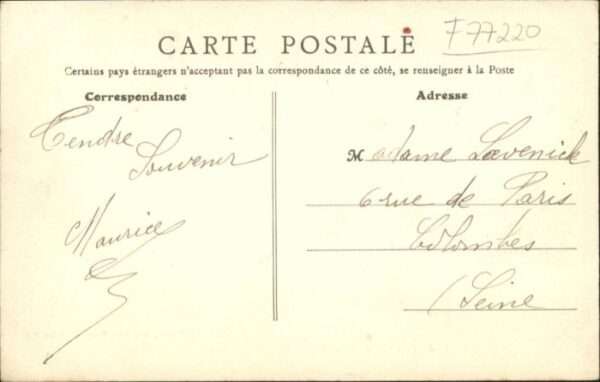 F77220
CARTE POSTALE
Certains pays étrangers n'acceptant pas la correspondance de ce côté, se renseigner à la Poste
Correspondance
Tendre
Souvenir
Maurice
Adresse
Madame Loevenick
6 rue de Paris
Colombes
(Seine